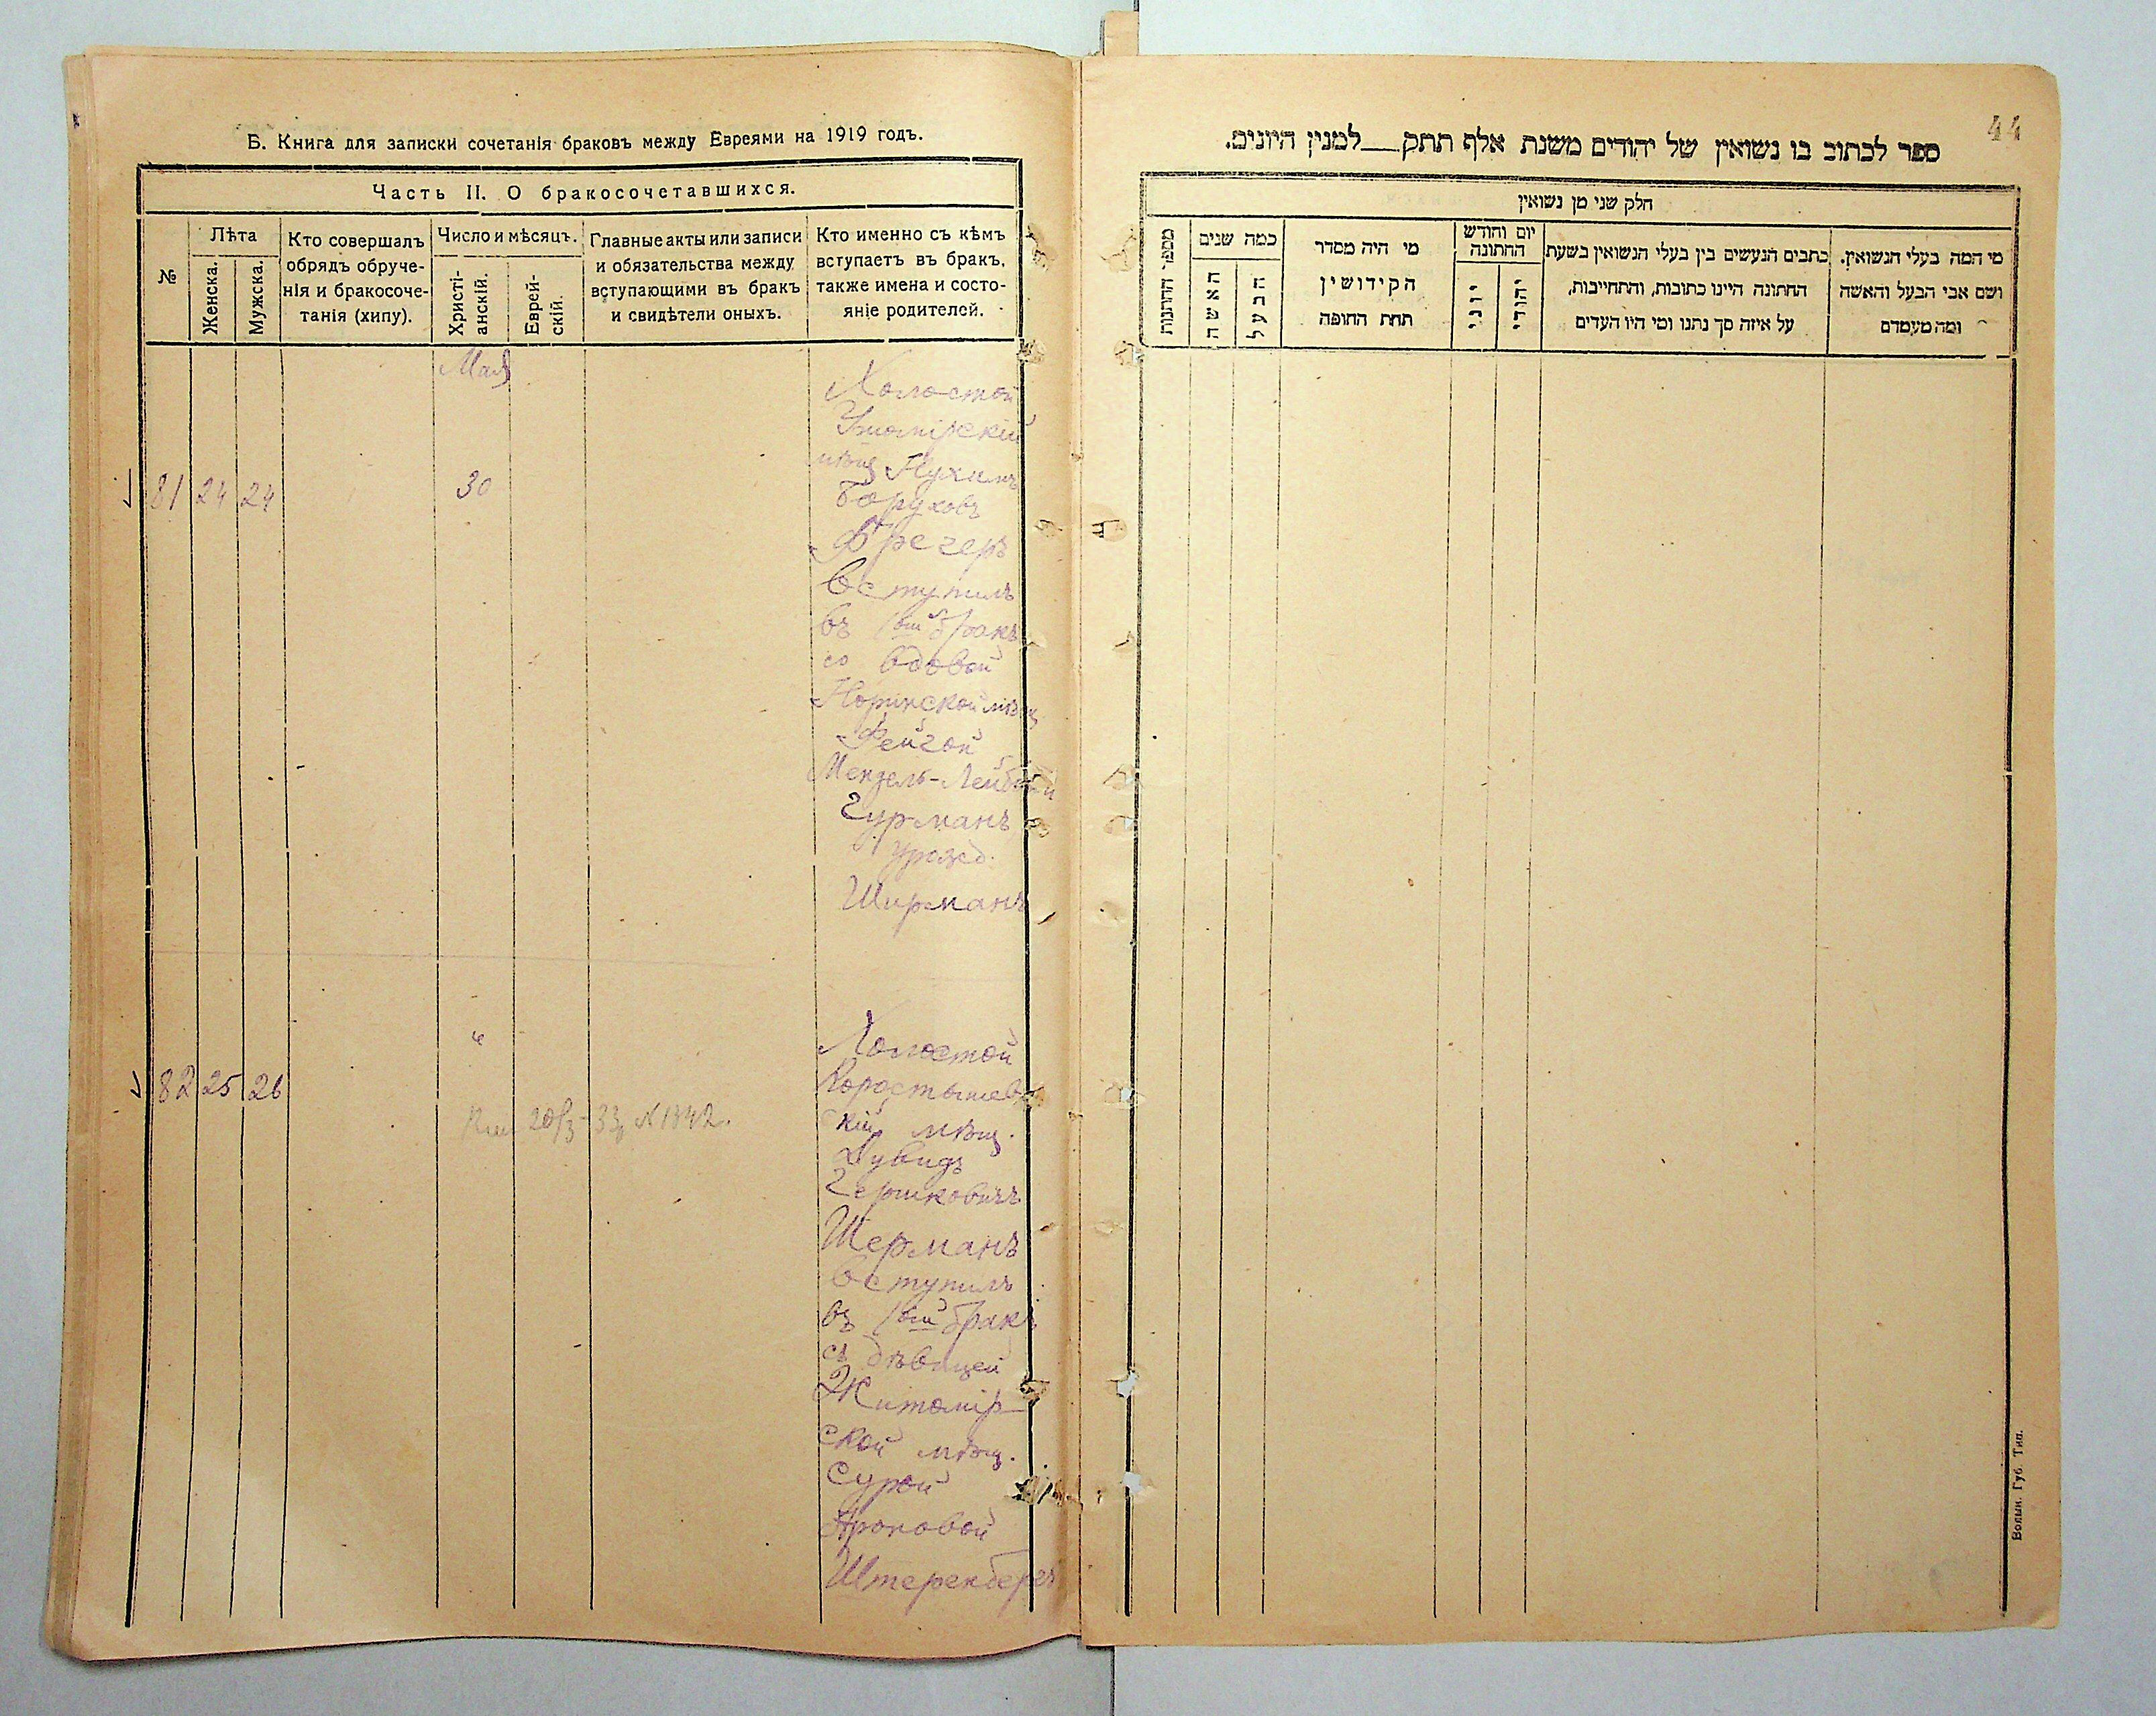 Б. Книга для записки сочетанія браковъ между Евреями на 1919 годъ.
Часть II. О бракосочетавшихся.
№
Лѣта
Женска.
Мужска.
Кто совершалъ
обрядъ обруче-
нія и бракосоче-
танія (хипу).
Число и мѣсяцъ.
Христі-
анскій.
Еврей-
скій.
Главные акты или записи
и обязательства между
вступающими въ бракъ
и свидѣтели оныхъ.
Кто именно съ кѣмъ
вступаетъ въ бракъ,
также имена и состо-
яніе родителей.
Мая
81 24 24 30
Холостой
Ушомірскій
мѣщ Нухимъ
Боруховъ
Фрегеръ
Вступилъ
въ 1вый бракъ
со вдовой
Норинской мѣщ
Фейгой
Мендель-Лейбовой
Гурманъ
урожд.
Ширманъ
82 25 26 "
20/3-33, №1342.
Холостой
Коростышев
скій мѣщ.
Дувидъ
Гершковичъ
Шерманъ
Вступилъ
въ 1вый бракъ
съ дѣвицей
Житомір-
ской мѣщ.
Сурой
Ароновой
Штеренбергъ
44
ספר לכתוב בו נשואין של יהודים משנת אלף תתק__למנין היונים.
חלק שני מן נשואין
מספר החתונות
כמה שנים
האשה
הבעל
מי היה מסדר
הקידושין
תחת החופה
יום וחודש
החתונה
יוני
יהודי
כתבים הנעשים בין בעלי הנשואין בשעת
החתונה היינו כתובות, והתחייבות,
על איזה סך נתנו ומי היו העדים
מי המה בעלי הנשואין.
ושם אבי הבעל והאשה
ומה מעמדם
Волын. Губ. Тип.